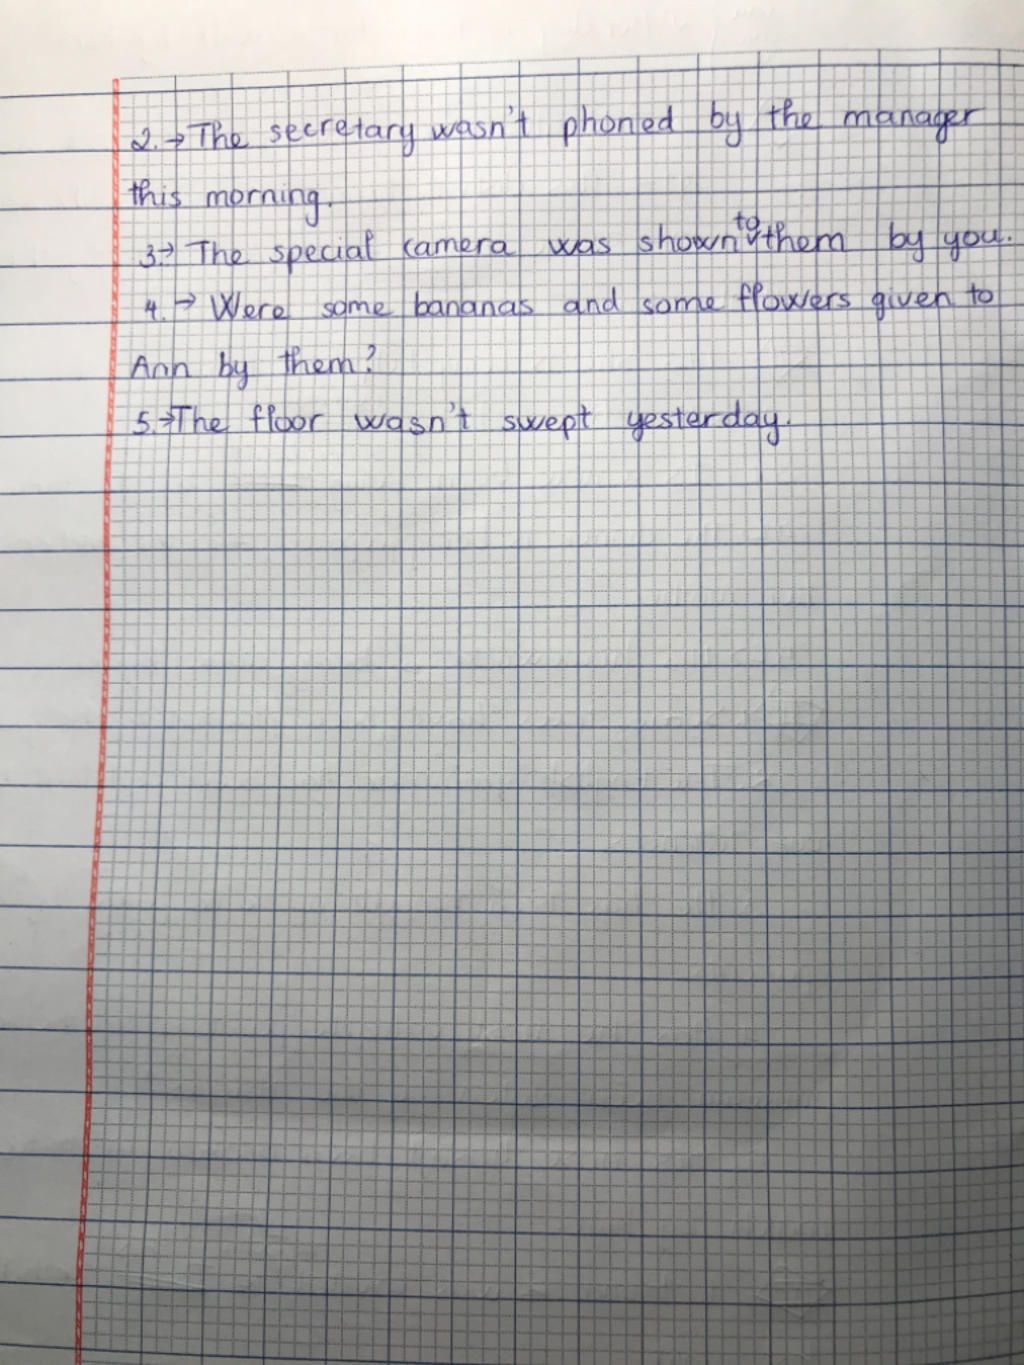 2. → The secretary wasn't phoned by the manager
this morning.
3 → The special camera was shown to them by you.
4. → Were some bananas and some flowers given to
Ann by them?
5. → The floor wasn't swept yesterday.